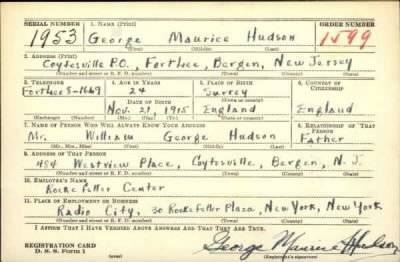 SERIAL NUMBER 1. NAME (Print) ORDER NUMBER
1953 George Maurice Hudson 1599
(First) (Middle) (Last)
2. ADDRESS (Print)
Coytesville P.O., Fort Lee, Bergen, New Jersey
(Number and street or R. F. D. number) (Town) (County) (State)
3. TELEPHONE 4. AGE IN YEARS 5. PLACE OF BIRTH 6. COUNTRY OF CITIZENSHIP
Fort Lee 8-1669 24 Surrey
DATE OF BIRTH (Town or county)
Nov. 21, 1915 England England
(Exchange) (Number) (Mo.) (Day) (Yr.) (State or country)
7. NAME OF PERSON WHO WILL ALWAYS KNOW YOUR ADDRESS 8. RELATIONSHIP OF THAT PERSON
Mr. William George Hudson Father
(Mr., Mrs., Miss) (First) (Middle) (Last)
9. ADDRESS OF THAT PERSON
454 Westview Place, Coytesville, Bergen, N. J.
(Number and street or R. F. D. number) (Town) (County) (State)
10. EMPLOYER'S NAME
Rockefeller Center
11. PLACE OF EMPLOYMENT OR BUSINESS
Radio City, 30 Rockefeller Plaza, New York, New York
(Number and street or R. F. D. number) (Town) (County) (State)
I AFFIRM THAT I HAVE VERIFIED ABOVE ANSWERS AND THAT THEY ARE TRUE.
REGISTRATION CARD George Maurice Hudson
D. S. S. FORM 1 (over) (Registrant's signature)